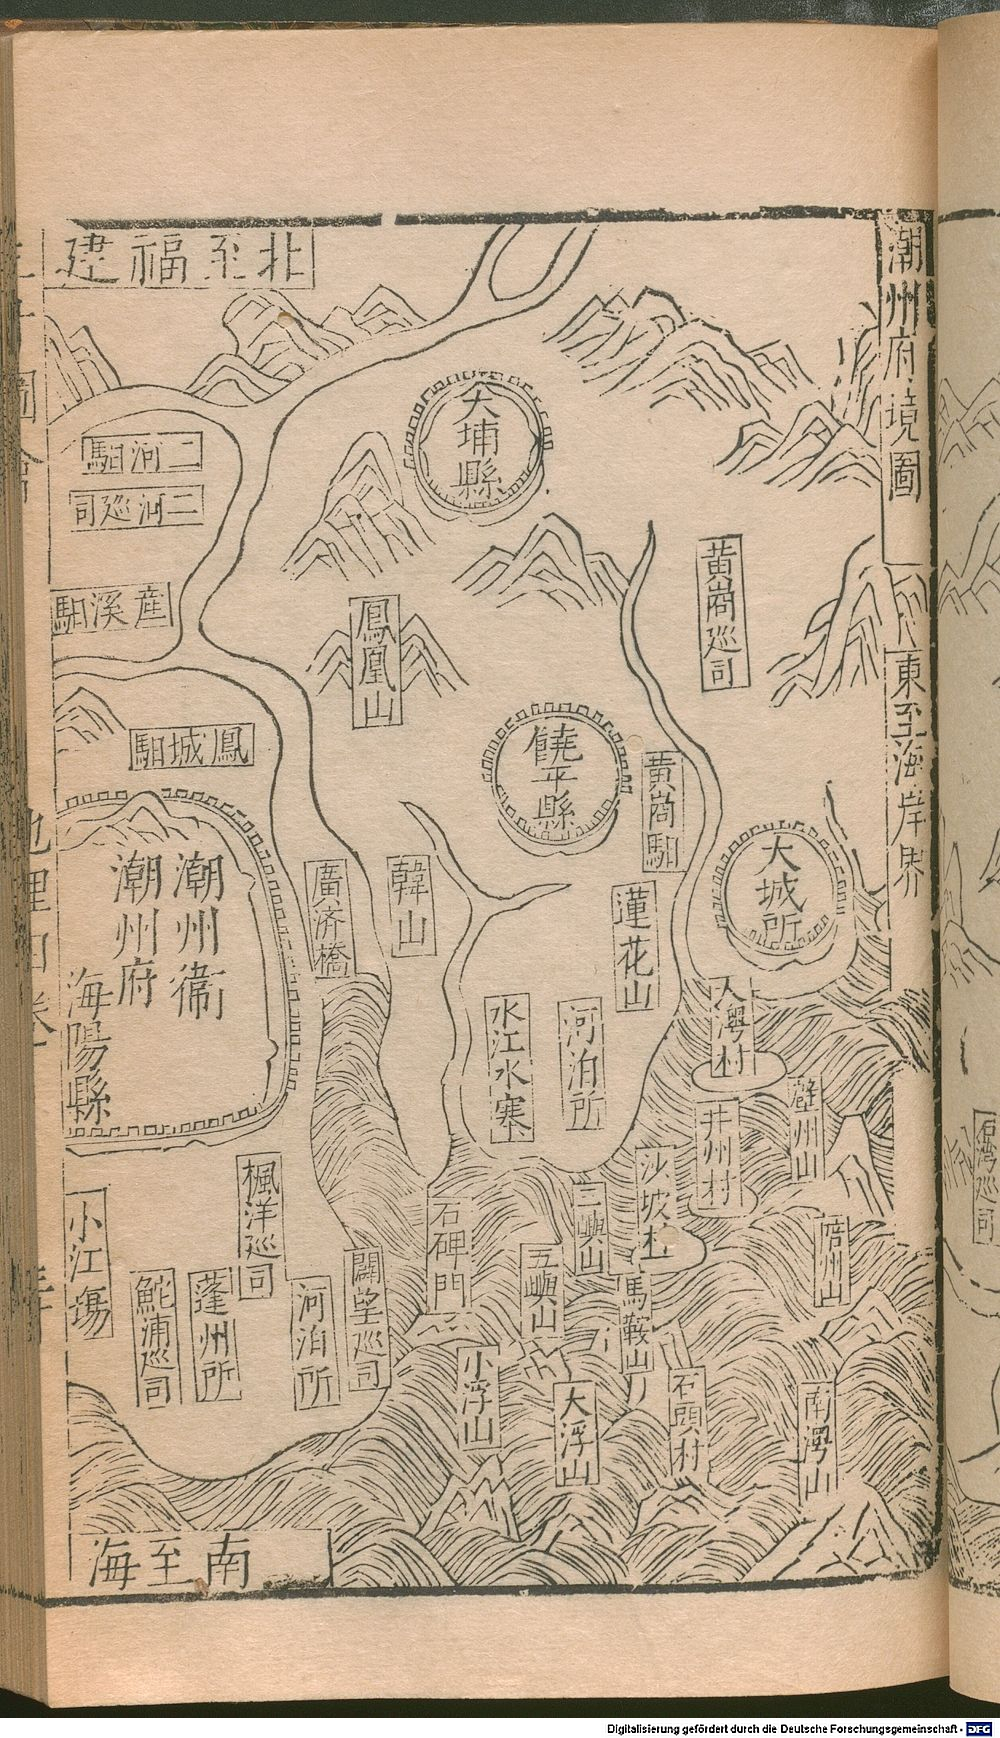 潮州府境圖
東至海岸界
北至福建
大埔縣
二河馹
二河巡司
產溪馹
鳳凰山
黃崗巡司
鳳城馹
饒平縣
黃崗馹
大城所
潮州衞
潮州府
海陽縣
廣济橋
韓山
蓮花山
水江水寨
河泊所
大澳村
井州村
沙坡村
三嶼山
五嶼山
馬鞍山
石碑門
楓洋巡司
闢望巡司
河泊所
蓬州所
鮀浦巡司
小江塲
小浮山
大浮山
石頭村
南澳山
南至海
石湾巡司
Digitalisierung gefördert durch die Deutsche Forschungsgemeinschaft - DFG